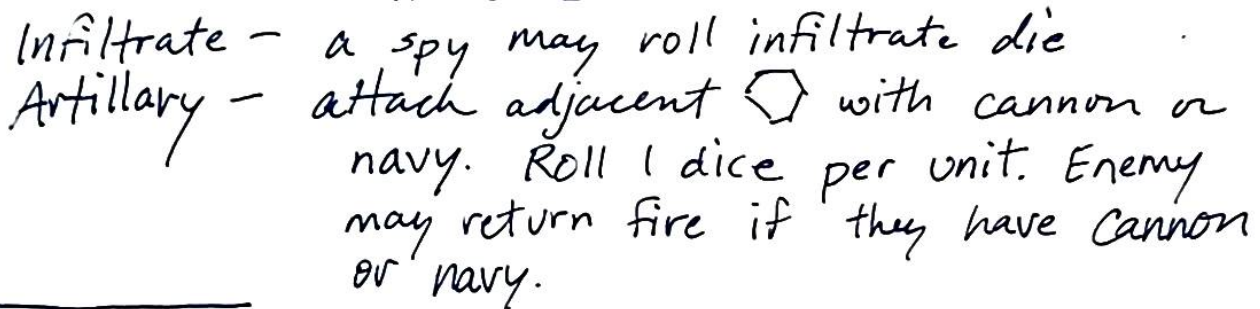 Infiltrate - a spy may roll infiltrate die
Artillary - attach adjacent ⬡ with cannon or
navy. Roll 1 dice per unit. Enemy
may return fire if they have cannon
or navy.